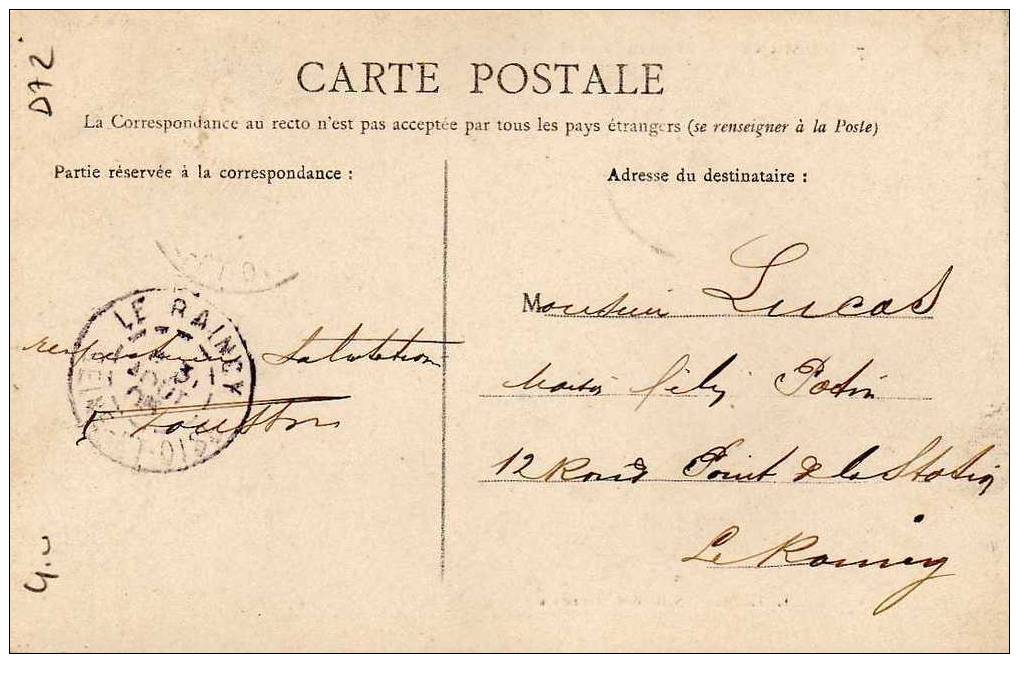 D72
CARTE POSTALE
La Correspondance au recto n'est pas acceptée par tous les pays étrangers (se renseigner à la Poste)
Partie réservée à la correspondance :
Adresse du destinataire :
LE RAINCY
SEINE-ET-OISE
Monsieur Lucas
Salutation
Maison Félix Potin
12 Rond Point de la Station
Le Raincy